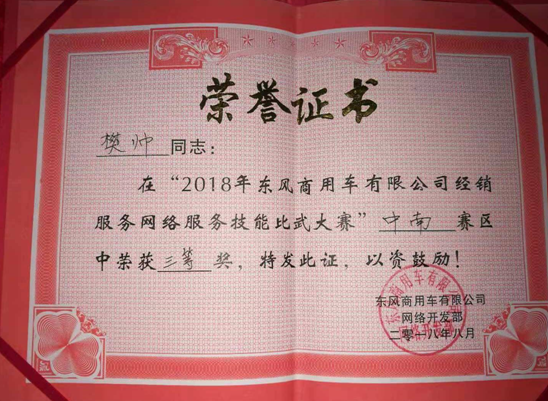 荣誉证书
樊帅同志：
在“2018年东风商用车有限公司经销
服务网络服务技能比武大赛”中南赛区
中荣获三等奖，特发此证，以资鼓励！
东风商用车有限公司
网络开发部
二零一八年八月